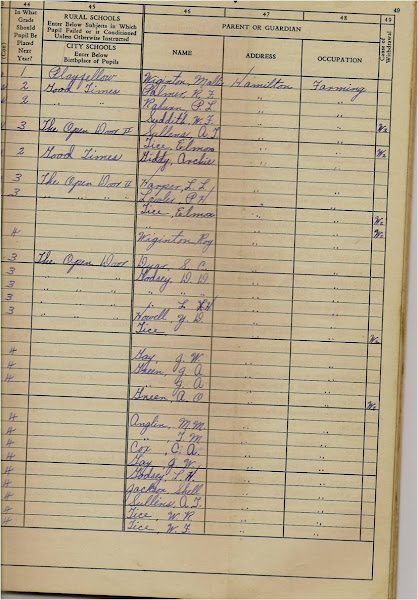 44 45 46 47 48 49
In What Grade Should Pupil Be Placed Next Year?
RURAL SCHOOLS
Enter Below Subjects in Which Pupil Failed or is Conditioned Unless Otherwise Instructed
CITY SCHOOLS
Enter Below Birthplace of Pupils
PARENT OR GUARDIAN
NAME ADDRESS OCCUPATION
Cause of Withdrawal
1 Playfellow Wiginton, Hamilton Farming
2 Good Times Palmer, R. F. " "
2 " " P. L. " "
Suddith, W. F. " "
3 The Open Door II Sullens, A. T. " " W2
Tice, Elmon " "
2 Good Times Giddy, Archie " " W2
3 The Open Door II Harper, L. L. " "
3 " " " " Lawler, P. H. " "
Tice, Elmon " " W2
4 Wiginton, Roy " " W2
3 The Open Door Dyar, S. C. " "
3 " " Godsey, D. D. " "
3 " " " " " "
3 " " " L. " "
3 " " Howell, Y. D. " "
Tice " " W2
4 Gay, J. W. " "
4 Green, G. A. " "
4 " G. A. " "
Green, A. O. " " W2
4 Anglin, M. M. " "
4 " T. M. " "
4 Cox, C. A. " "
4 Gay, J. W. " "
4 Godsey, L. H. " "
4 Jackson, Shell " "
4 Sullins, A. T. " "
4 Tice, W. R. " "
4 Tice, W. F. " "